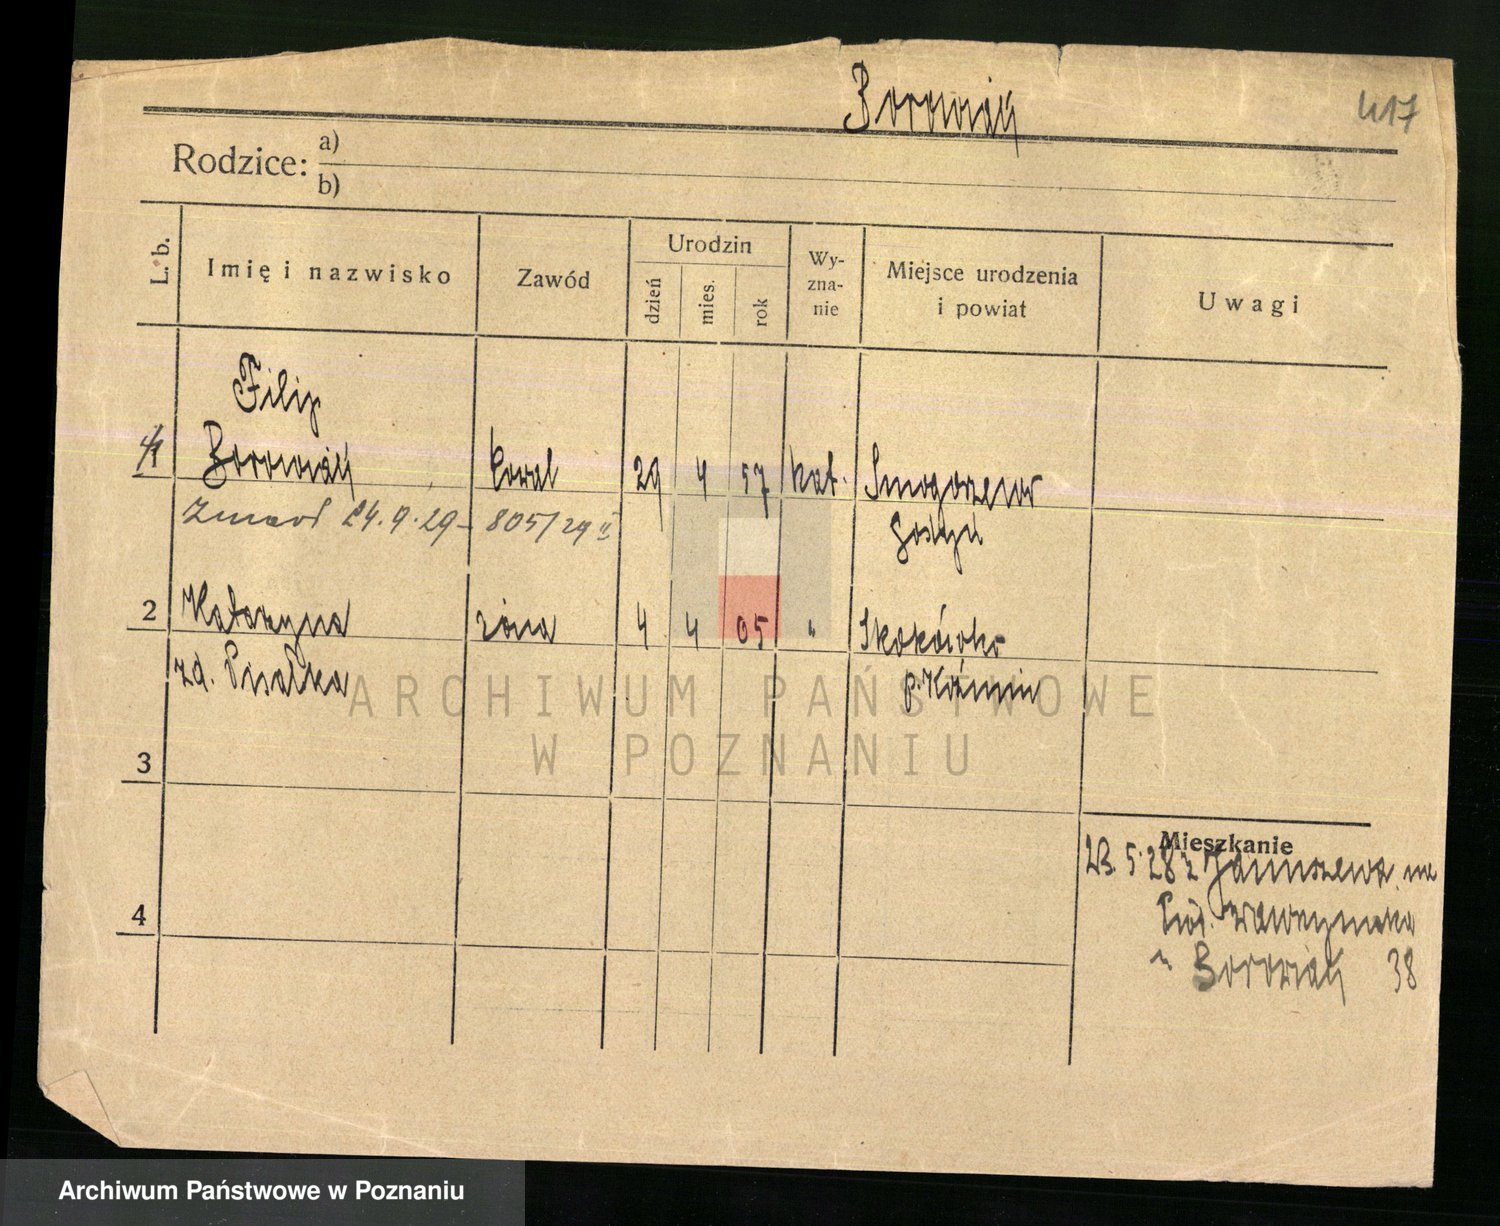 Borowiak
417
Rodzice: a)
b)
L. b.
Imię i nazwisko
Zawód
Urodzin
dzień
mies.
rok
Wy-
zna-
nie
Miejsce urodzenia
i powiat
Uwagi
Filip
1 Borowiak kowal 29 4 57 kat. Smogorzewo
Zmarł 24.9.29 - 805/29 II Gostyń
2 Katarzyna żona 4 4 05 " Skokówko
zd. Pisalka p. Koźmin
3
4
Mieszkanie
23.5.28 z Januszewa na
Wawrzyniaka
" Borowiak 38
ARCHIWUM PAŃSTWOWE
W POZNANIU
Archiwum Państwowe w Poznaniu